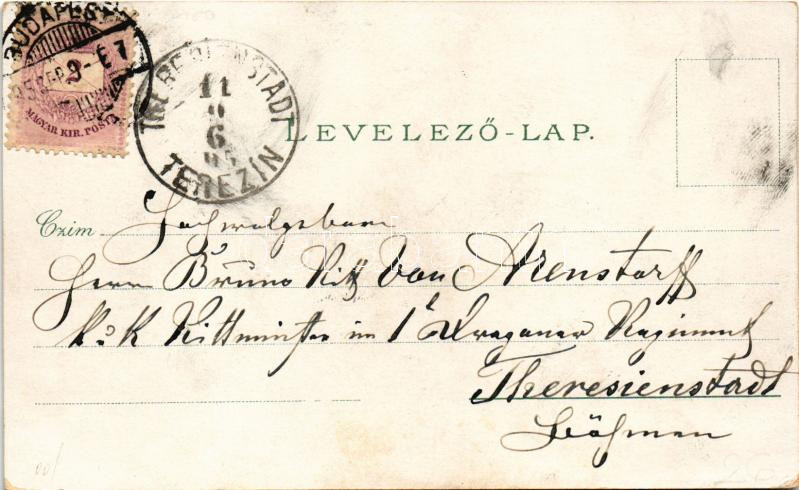 BUDAPEST
2
MAGYAR KIR. POSTA
THERESIENSTADT
11
6
95
TEREZÍN
LEVELEZŐ-LAP.
Czim Hochwolgeboren
Herrn Bruno Ritt von Arenstorff
K. & K. Rittmeister im 1t Dragoner Regiment
Theresienstadt
Böhmen